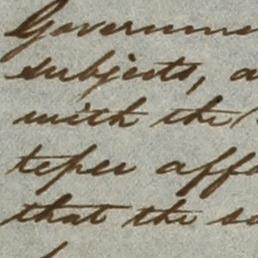 Governme
subjects, a
with the
teper aff
that the s